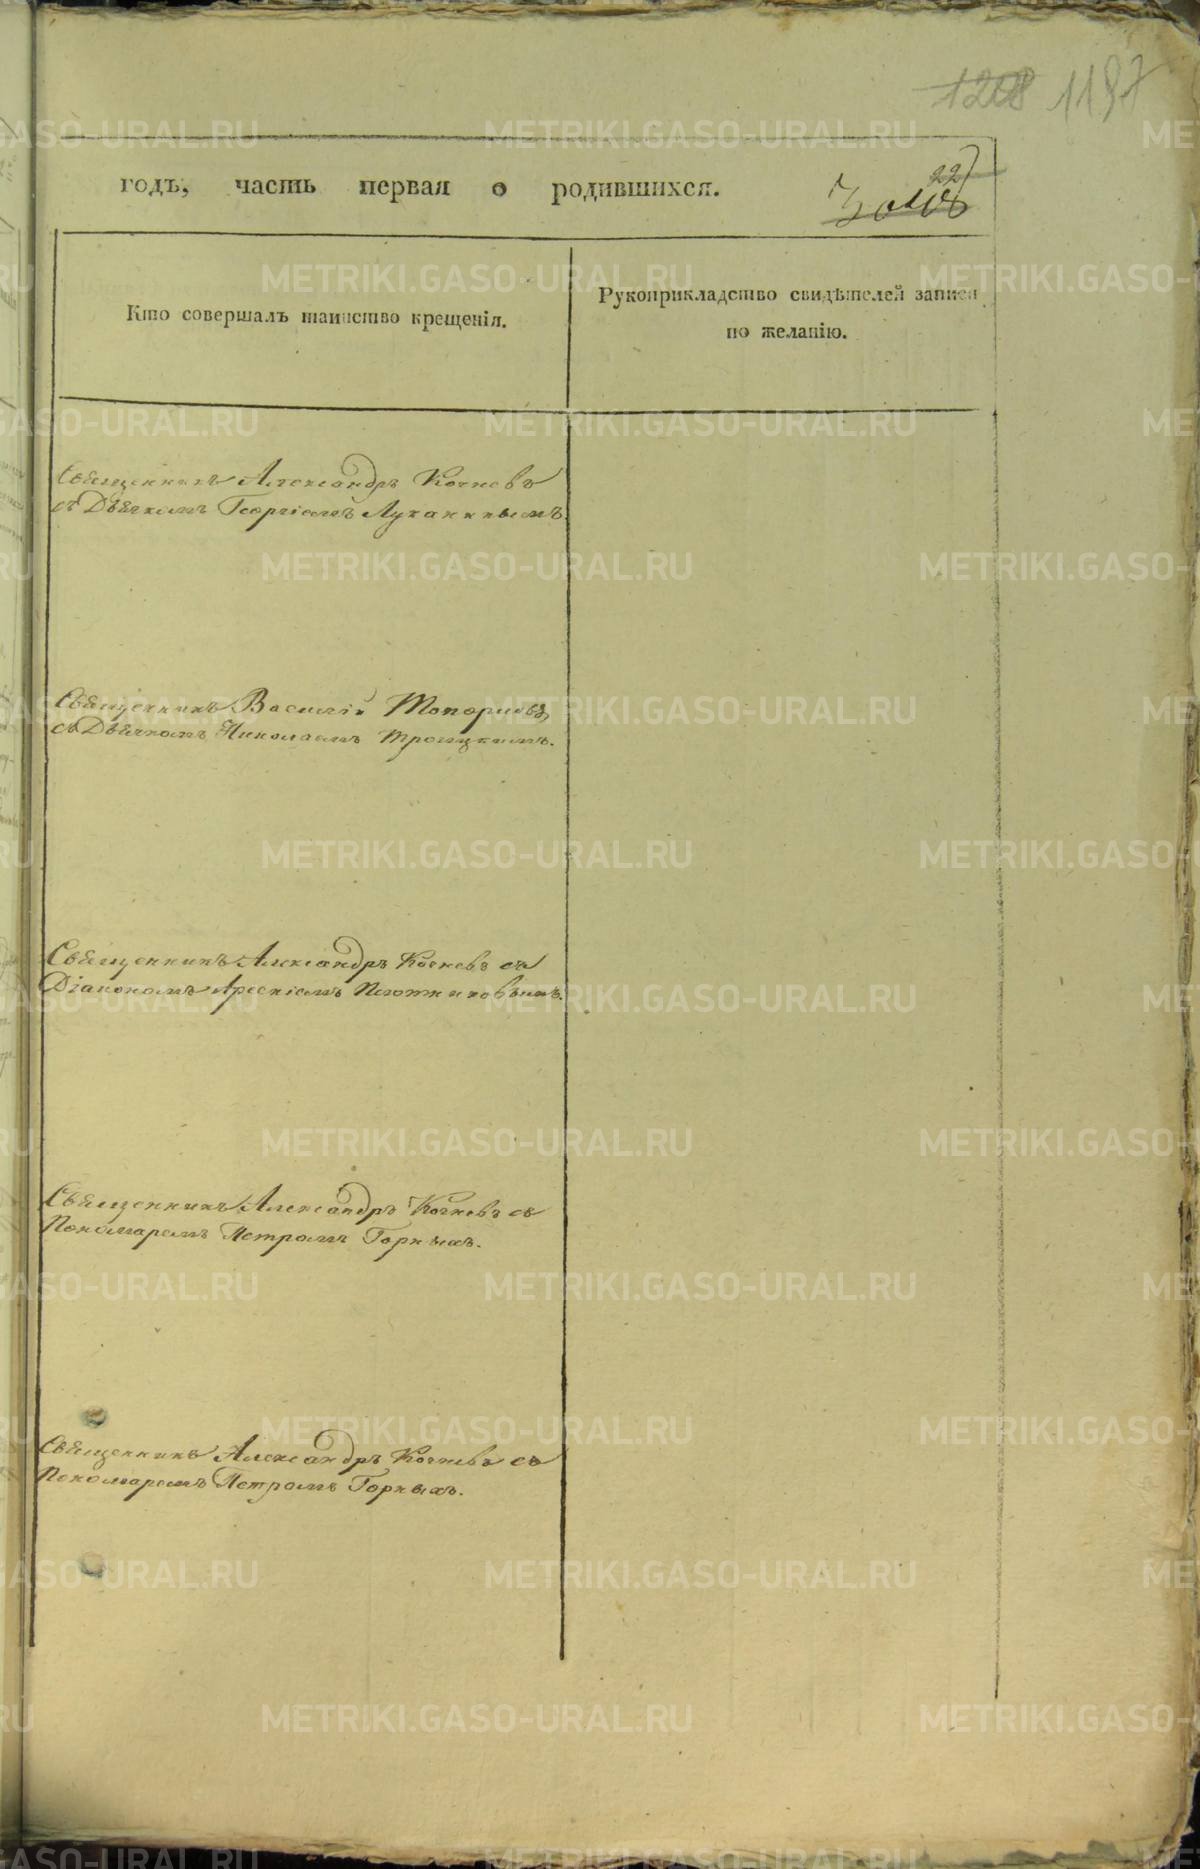 1208 1197
годъ, часть первая о родившихся.
227
Кто совершалъ таинство крещенія.
Рукоприкладство свидѣтелей записи
по желанію.
Священникъ Александръ Кочневъ
съ Дьячкомъ Георгіемъ Луканинымъ.
Священникъ Василій Топорковъ
съ Дьячкомъ Николаемъ Троицкимъ.
Священникъ Александръ Кочневъ съ
Діакономъ Арсеніемъ Плотниковымъ.
Священникъ Александръ Кочневъ съ
Пономаремъ Петромъ Горныхъ.
Священникъ Александръ Кочневъ съ
Пономаремъ Петромъ Горныхъ.
METRIKI.GASO-URAL.RU